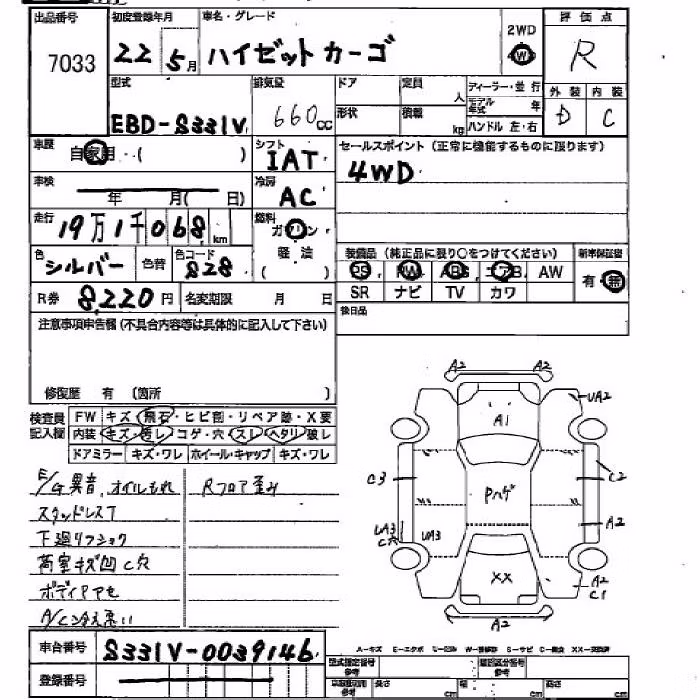 出品番号 初度登録年月 車名・グレード 評価点
7033 22 5月 ハイゼットカーゴ 2WD 4W R
型式 排気量 ドア 定員 人 ディーラー・並行 外装 内装
EBD-S331V 660cc 形状 積載 kg モデル年式 年 D C
ハンドル 左・右
車歴 自家用・( ) シフト IAT セールスポイント(正常に機能するものに限ります)
4WD
車検 年 月( 日) 冷房 AC
走行 19万1千068km 燃料 ガソリン・軽油( )
色 シルバー 色替 色コード S28 装備品(純正品に限り○をつけてください) 新車保証書
PS PW ABS エアB AW 有・無
R券 8,220円 名変期限 月 日 SR ナビ TV カワ
注意事項申告欄(不具合内容等は具体的に記入して下さい) 後日品
修復歴 有 〔箇所 〕
検査員記入欄 FW キズ・飛石・ヒビ割・リペア跡・X要
内装 キズ・汚レ・コゲ・穴・スレ・ヘタリ・破レ
ドアミラー キズ・ワレ ホイール・キャップ キズ・ワレ
E/G異音,オイルもれ Rフロア歪ミ
スタッドレスT
下廻りフショク
荷室キズ凹C穴
A/C冷え悪い
A2 A2
UA2
A1
C3 C2
Pハゲ
A2
UA3 C穴 UA3
XX A2 C1
A2
車台番号 S331V-0039146
A-キズ E-エクボ U-凹ミ W-補修跡 S-サビ C-腐食 XX-交換済
登録番号 型式指定番号 参考 類別区分番号 参考
車両寸法 参考 長さ cm 幅 cm 高さ cm